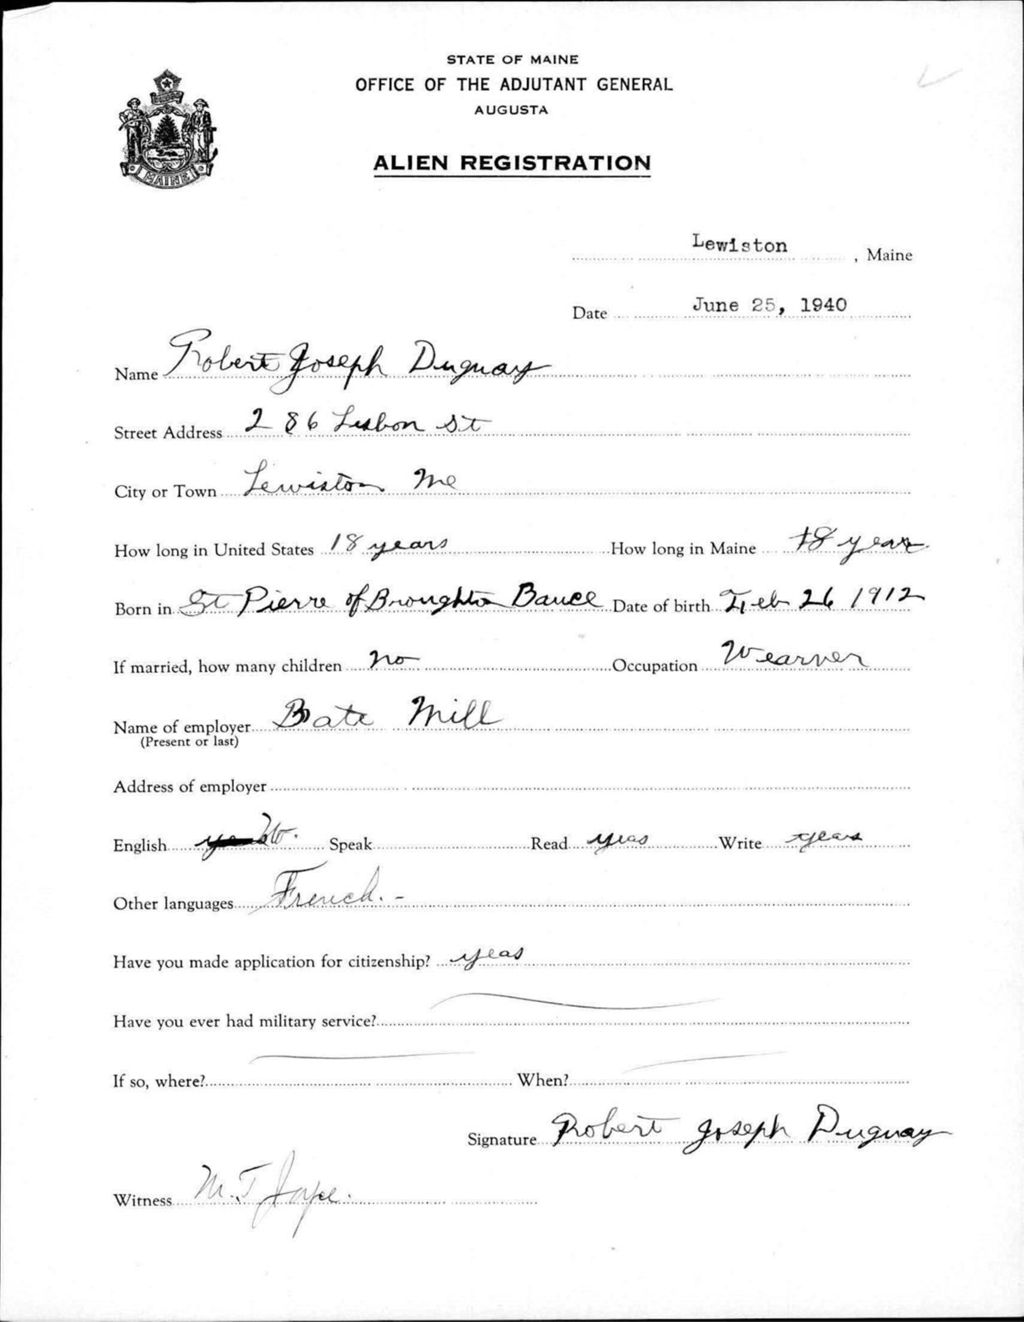 STATE OF MAINE
OFFICE OF THE ADJUTANT GENERAL
AUGUSTA
ALIEN REGISTRATION
MAINE
Lewiston, Maine
Date June 25, 1940
Name Robert Joseph Duguay
Street Address 286 Lisbon St
City or Town Lewiston Me
How long in United States 18 years How long in Maine 18 year
Born in St Pierre of Broughton Bauce Date of birth Feb 26 1912
If married, how many children no Occupation Wearver
Name of employer Bate Mill
(Present or last)
Address of employer
English No. Speak Read yeas Write yeas
Other languages French. -
Have you made application for citizenship? yeas
Have you ever had military service?
If so, where? When?
Signature Robert Joseph Duguay
Witness M.T Joyce.